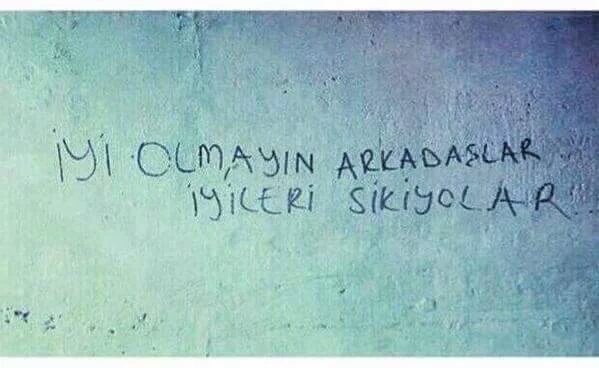 İYİ OLMAYIN ARKADAŞLAR
İYİLERİ SİKİYOLAR..